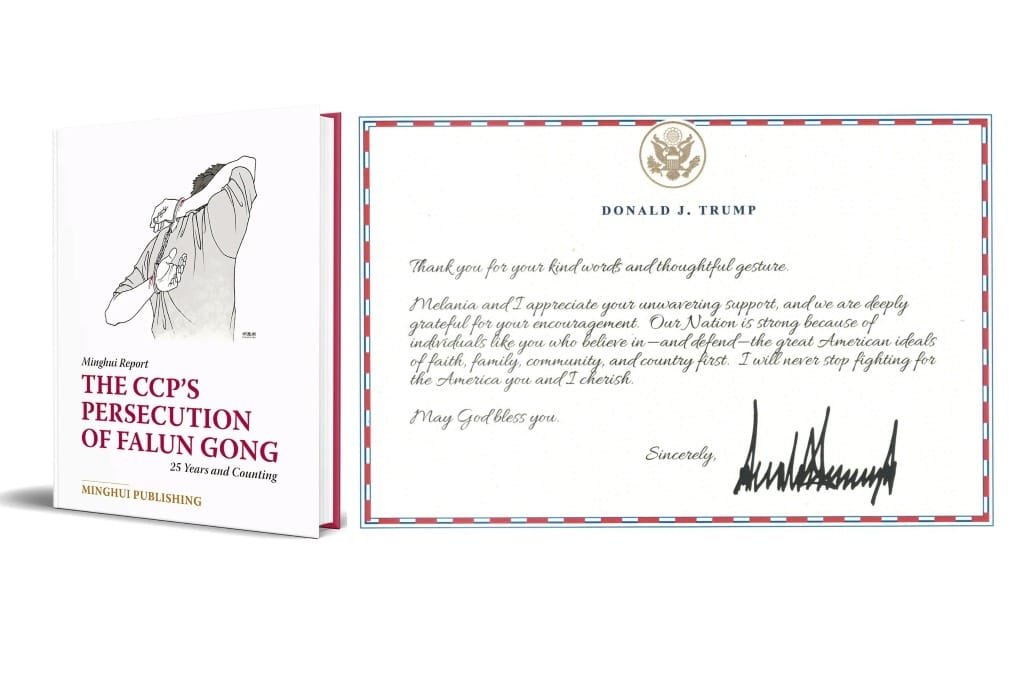 Minghui Report
THE CCP'S
PERSECUTION
OF FALUN GONG
25 Years and Counting
MINGHUI PUBLISHING
DONALD J. TRUMP
Thank you for your kind words and thoughtful gesture.
Melania and I appreciate your unwavering support, and we are deeply
grateful for your encouragement. Our Nation is strong because of
individuals like you who believe in—and defend—the great American ideals
of faith, family, community, and country first. I will never stop fighting for
the America you and I cherish.
May God bless you.
Sincerely,